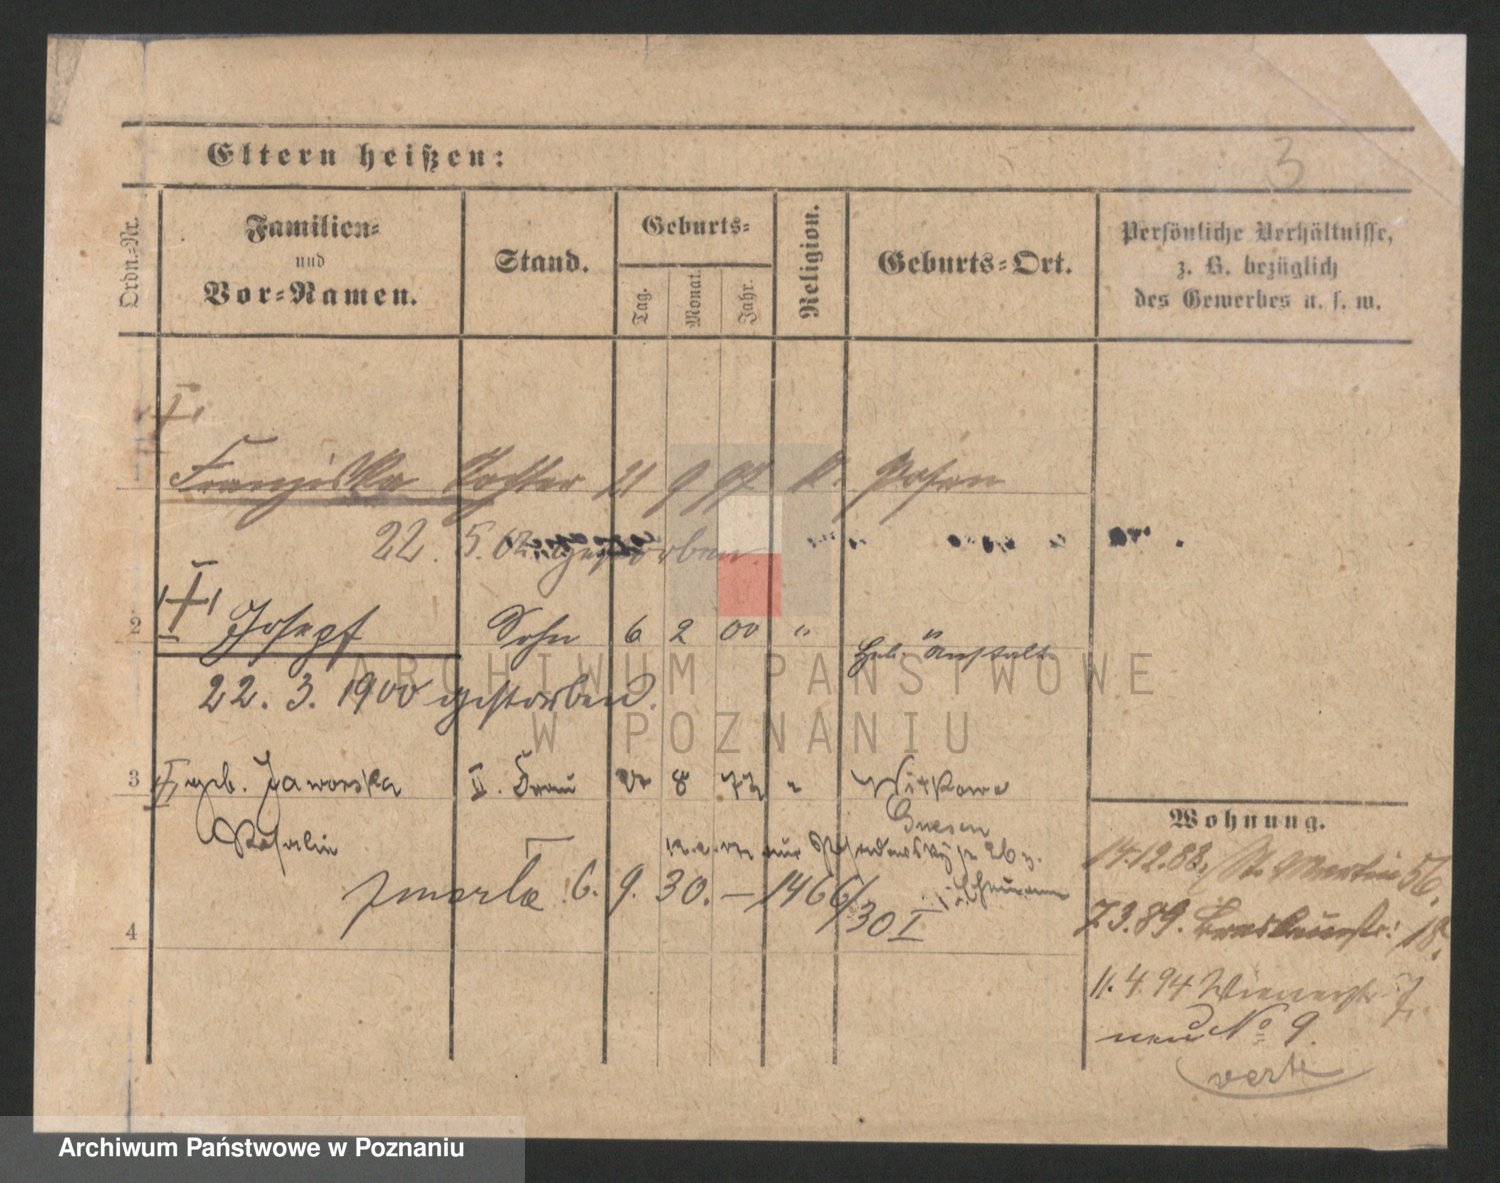 3
Eltern heißen:
Ordn.-Nr.
Familien-
und
Vor-Namen.
Stand.
Geburts-
Tag.
Monat.
Jahr.
Religion.
Geburts-Ort.
Persönliche Verhältnisse,
z. B. bezüglich
des Gewerbes u. s. w.
Franziska Tochter 21 9 K. Posen
22. 5. 02. gestorben.
2 Josepf Sohn 6 2 00 " "
Anstalt
22. 3. 1900 gestorben.
3 geb. Jaworska II. Frau 8 77 " Witkowo
Gnesen
zmarła 6. 9. 30. – 1466/30 I
4
Wohnung.
14.12.88. St. Martin 56.
7.3.89. 18.
11.4.94 Wienerstr. 7
neu No 9.
verte
ARCHIWUM PAŃSTWOWE
W POZNANIU
Archiwum Państwowe w Poznaniu